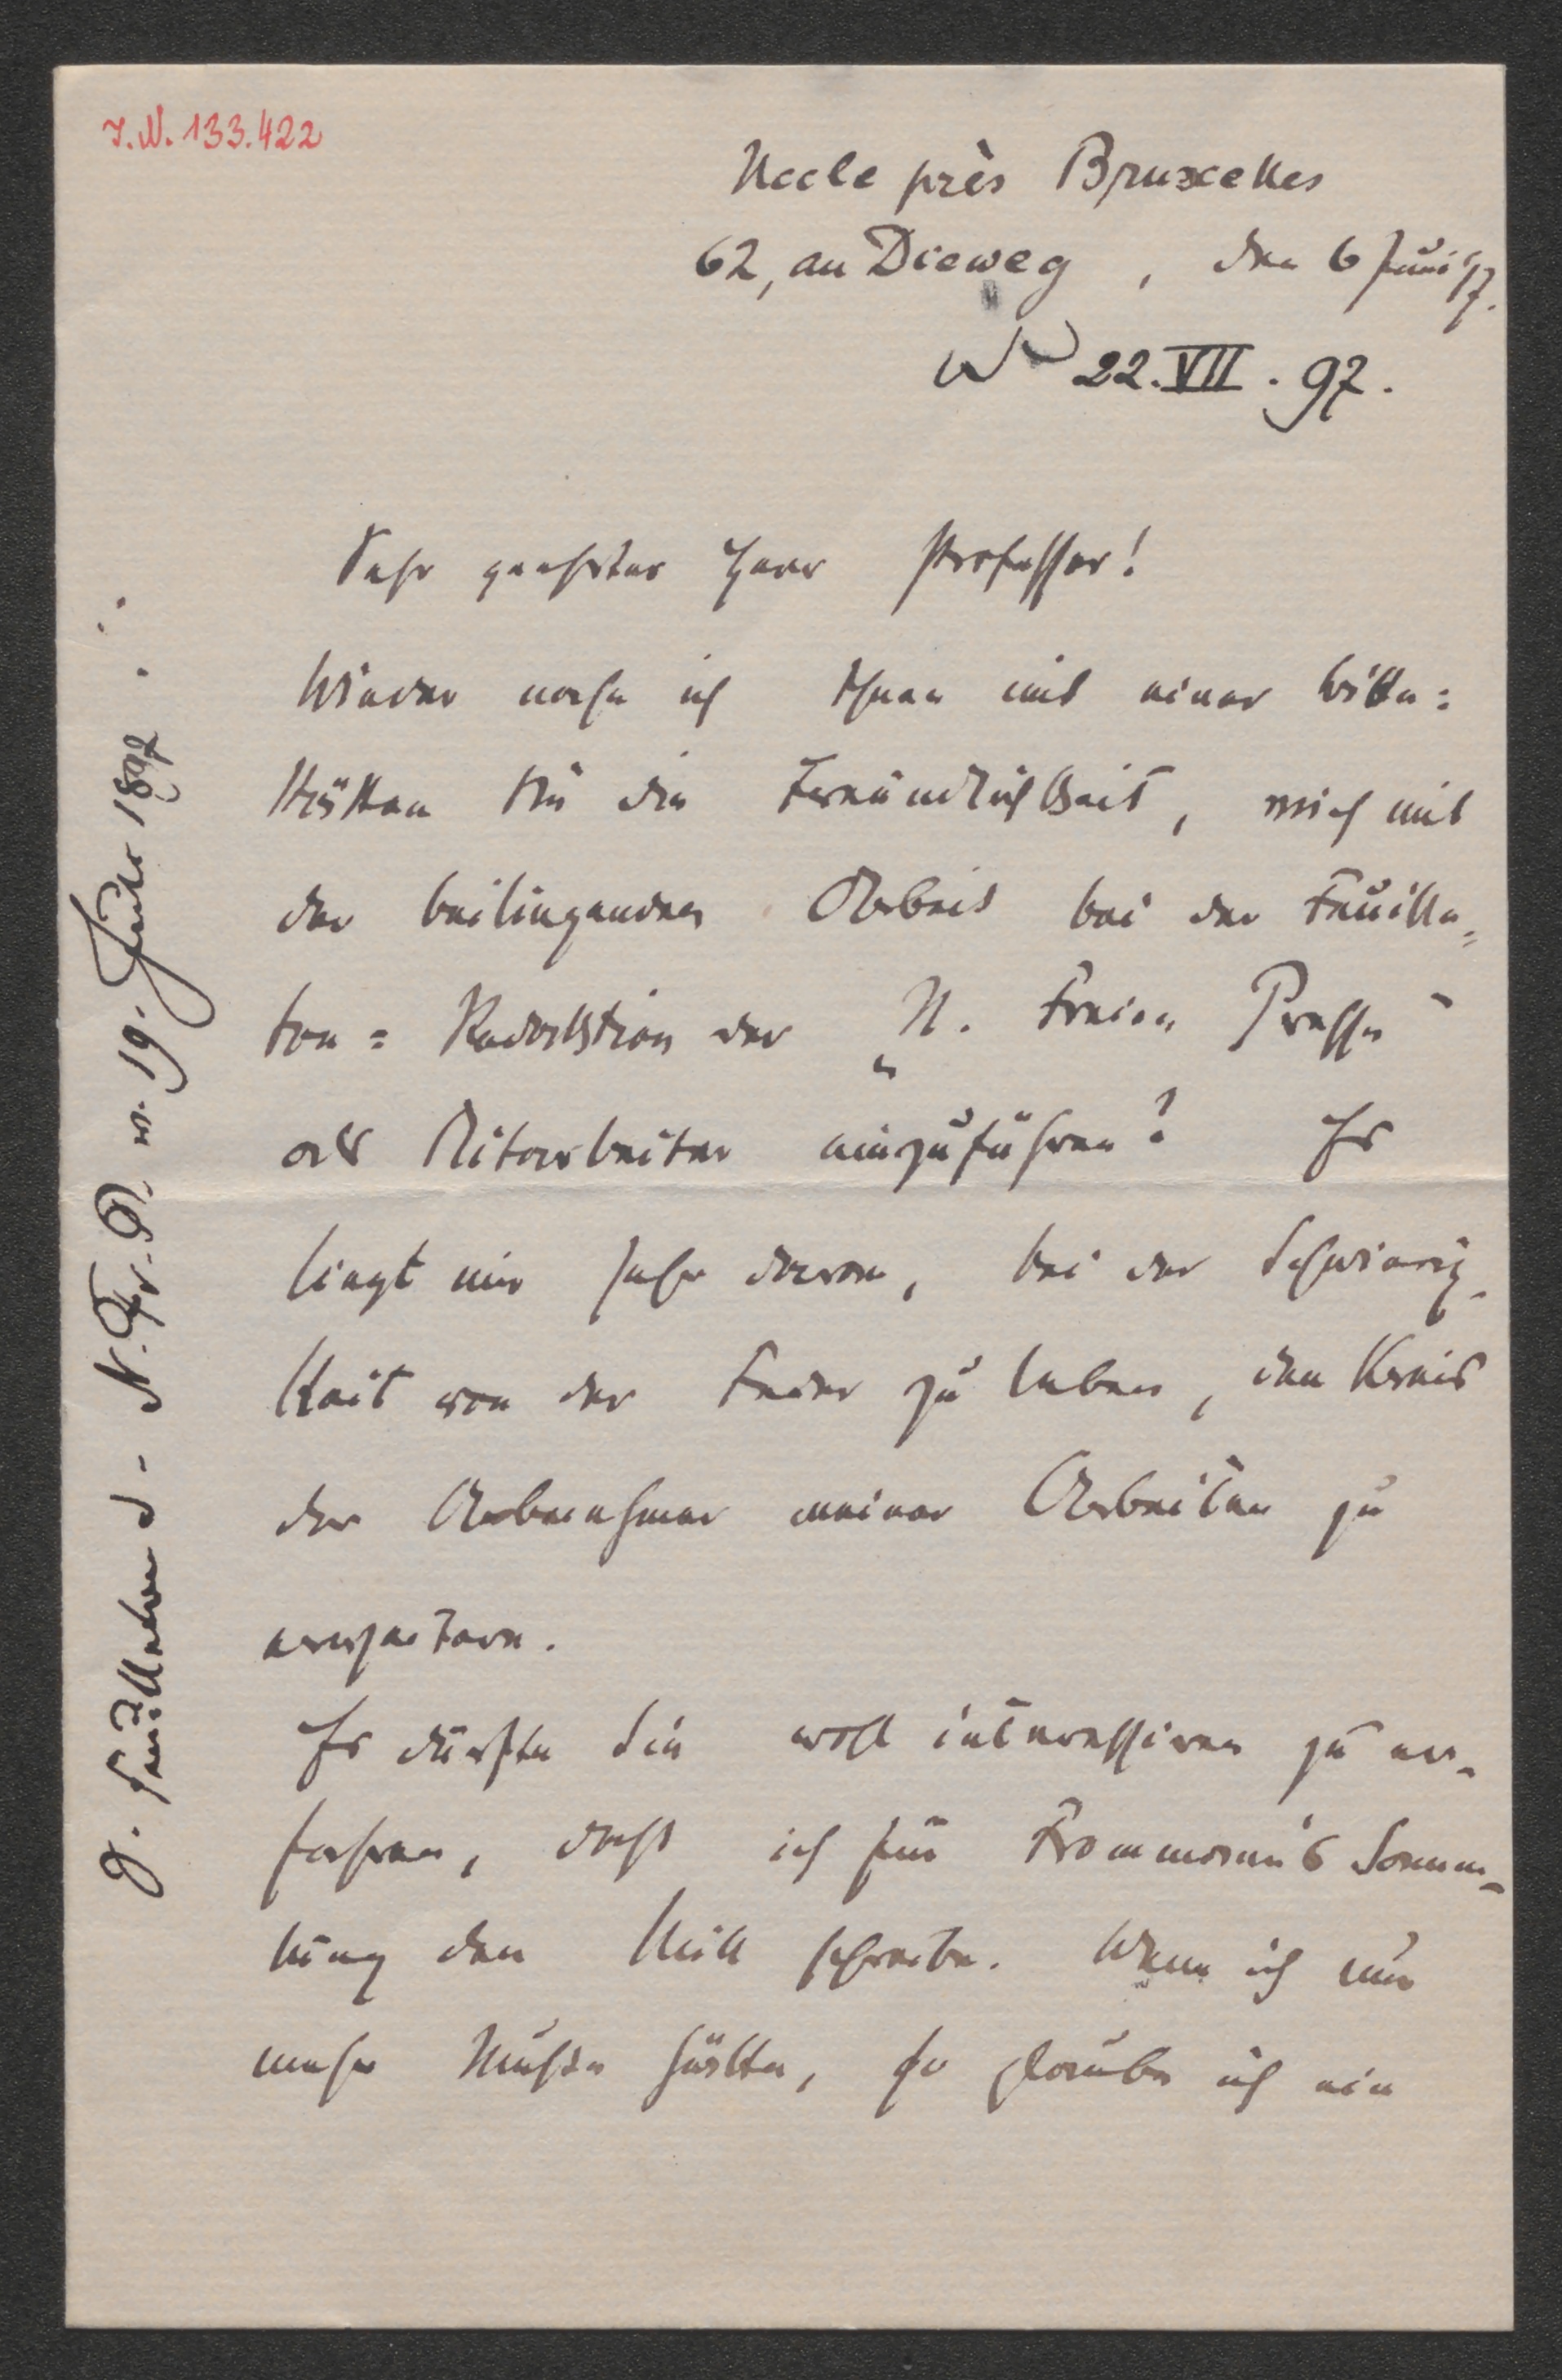 I.N. 133.422
Uccle près Bruxelles
62, au Dieweg, den 6 Juni 97.
22.VII.97.
Sehr geehrter Herr Professor!
Wieder nahe ich Ihnen mit einer Bitte:
Hätten Sie die Freundlichkeit, mich mit
der beiliegenden Arbeit bei der Feuille=
ton=Redaktion der „N. Freien Presse“
als Mitarbeiter einzuführen? Es
liegt mir sehr daran, bei der Schwierig-
keit von der Feder zu leben, den Kreis
der Abnehmer meiner Arbeiten zu
erweitern.
Es dürfte Sie wohl interessiren zu er-
fahren, dass ich für Frommann's Samm-
lung den Mill schreibe. Wenn ich nur
mehr Muße hätte, so glaube ich ein
g. Feuilleton d. N. Fr. Pr. v. 19. Juli 1897